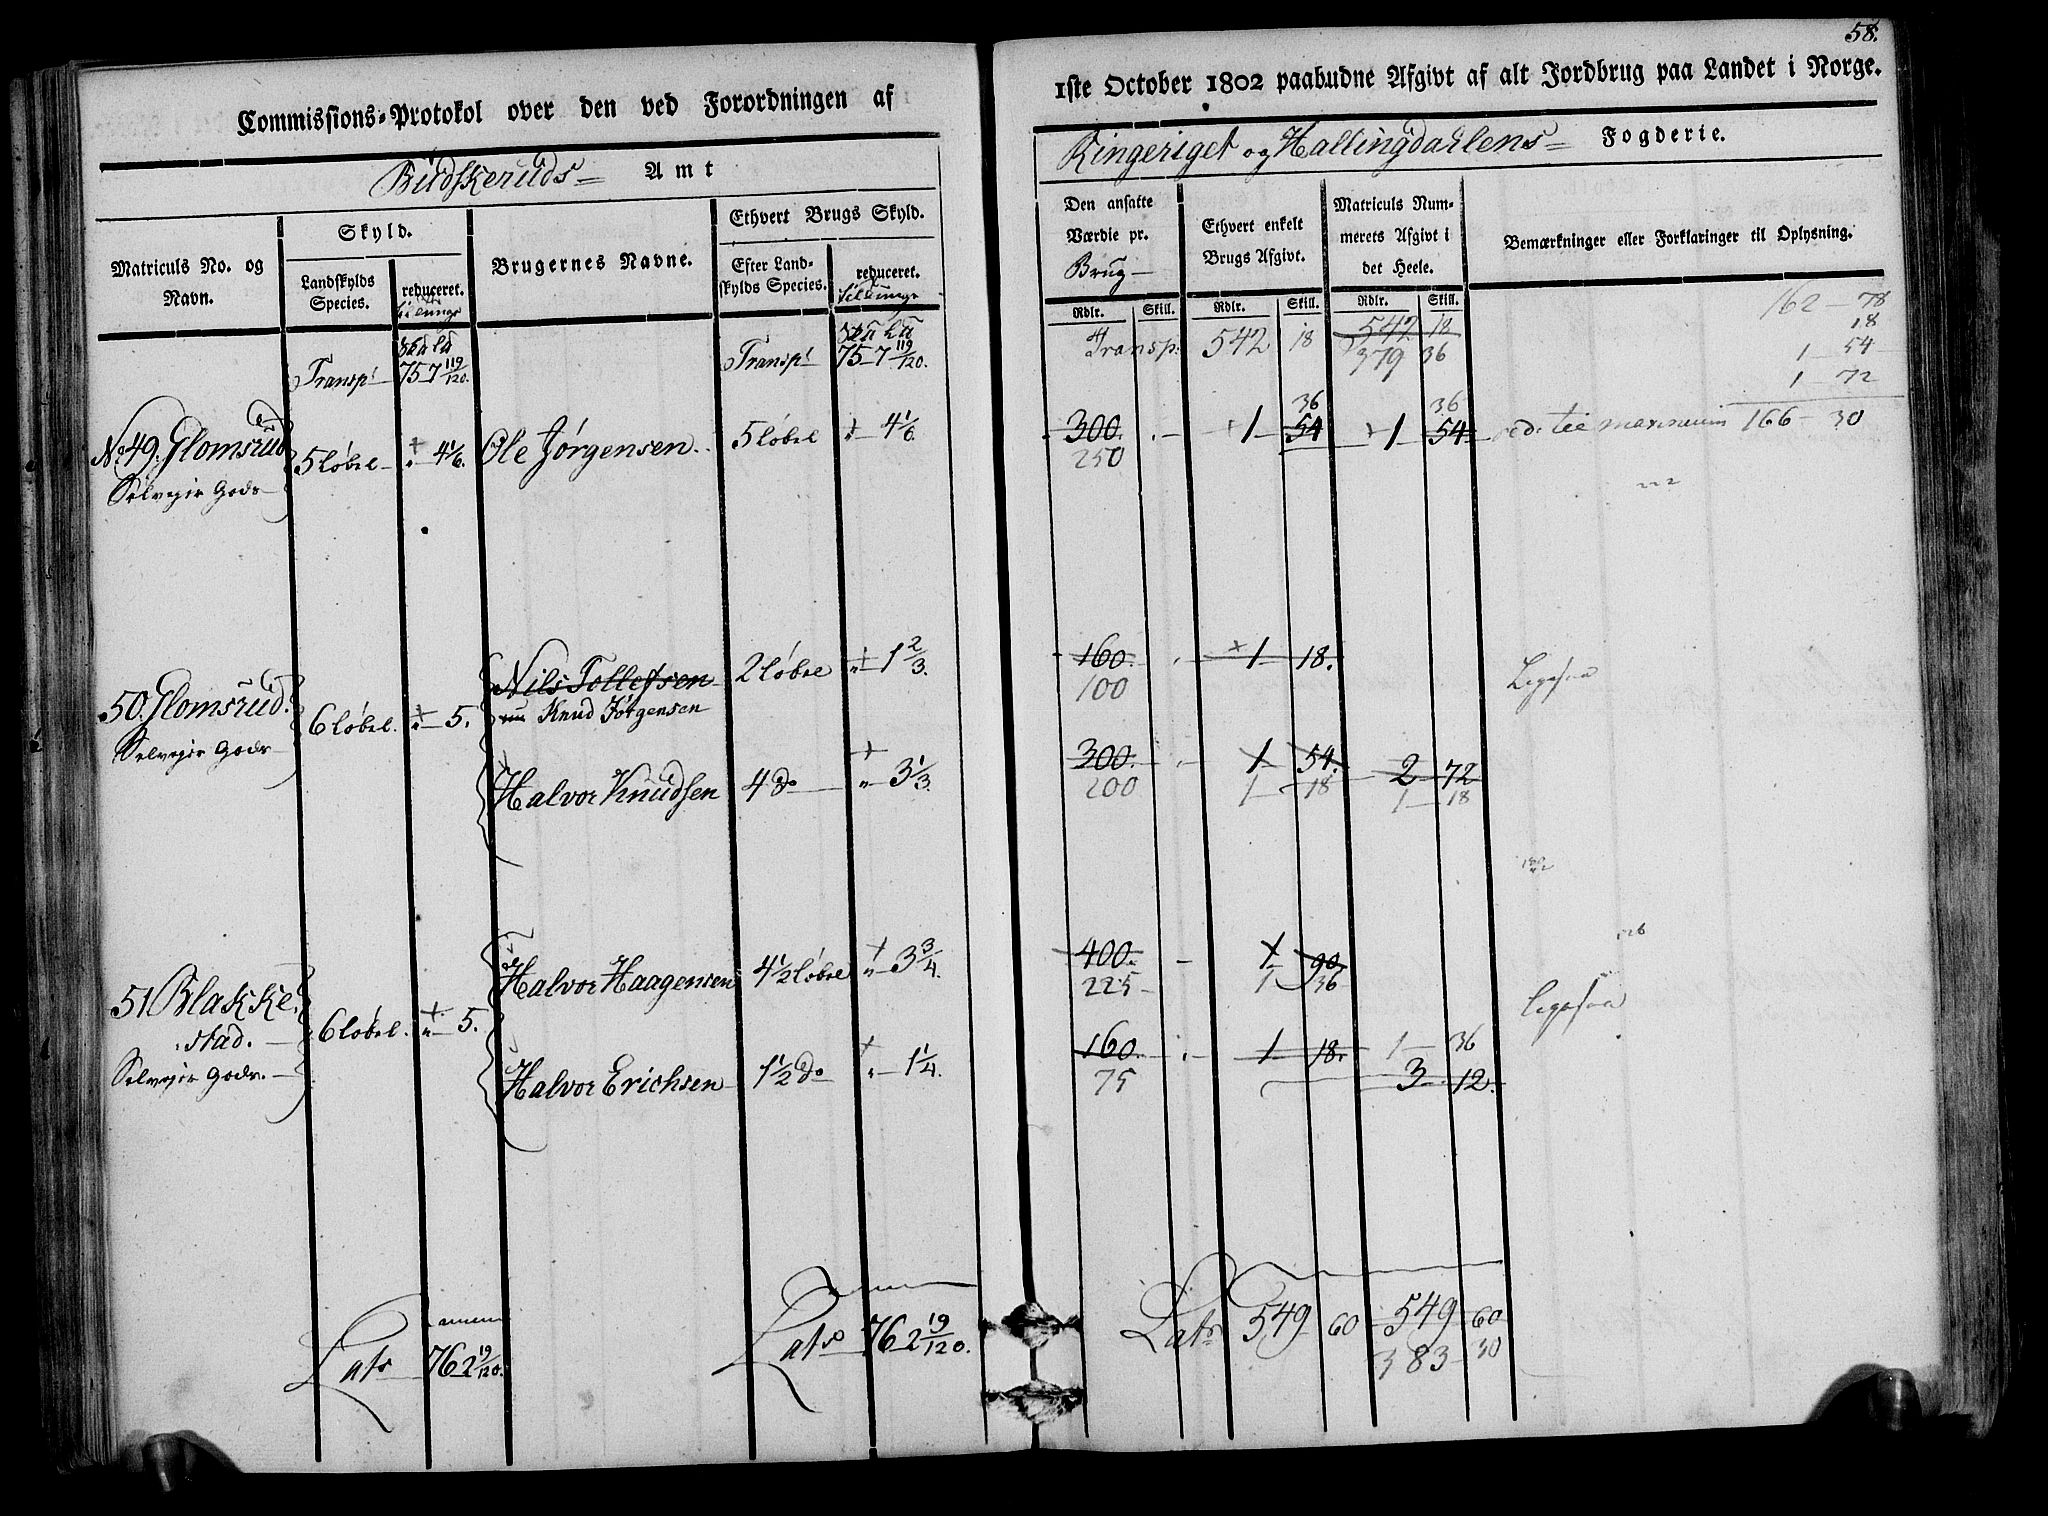 58.
Commissions-Protokol over den ved Forordningen af
1ste October 1802 paabudne Afgivt af alt Jordbrug paa Landet i Norge.
Budskeruds Amt
Ringeriget og Hallingdahlens Fogderie.
Matriculs No. og Navn.
Skyld.
Landskylds Species.
reduceret.
Brugernes Navne.
Ethvert Brugs Skyld.
Efter Landskylds Species.
reduceret.
Den ansatte Værdie pr. Brug
Ethvert enkelt Brugs Afgivt.
Matriculs Nummerets Afgivt i det Heele.
Bemærkninger eller Forklaringer til Oplysning.
Rdlr. Skill. Rdlr. Skill. Rdlr. Skill.
Transpt 75-7 119/120. Transpt 75-7 119/120. Transp: 542 18 542 18
379 36
162-78
18
1-54
1-72
166-30
No 49. Glomsrud 5 Løbel 4 1/6. Ole Jørgensen. 5 Løbel 4 1/6 300. 1 54 1 54
36 36
250
Selveier Gods
50. Glomsrud. 6 Løbel. 5. Nils Tollefsen 2 Løbel 1 2/3. 160. 1 18.
100
Knud Jørgensen
Selveier Gods
Halvor Knudsen 4 do 3 1/3. 300. 1 54. 2 72
200 1 18 1 18
51 Blakkestad. 6 Løbel. 5. Halvor Haagensen 4 1/2 Løbel 3 3/4. 400. 1 90
225 1 36
Selveier Gods.
Halvor Erichsen 1 1/2 do 1 1/4. 160. 1 18. 1 36
75 3 12.
Lats 76 2 19/120. Lats 76 2 19/120. Lats 549 60 549 60
383 30